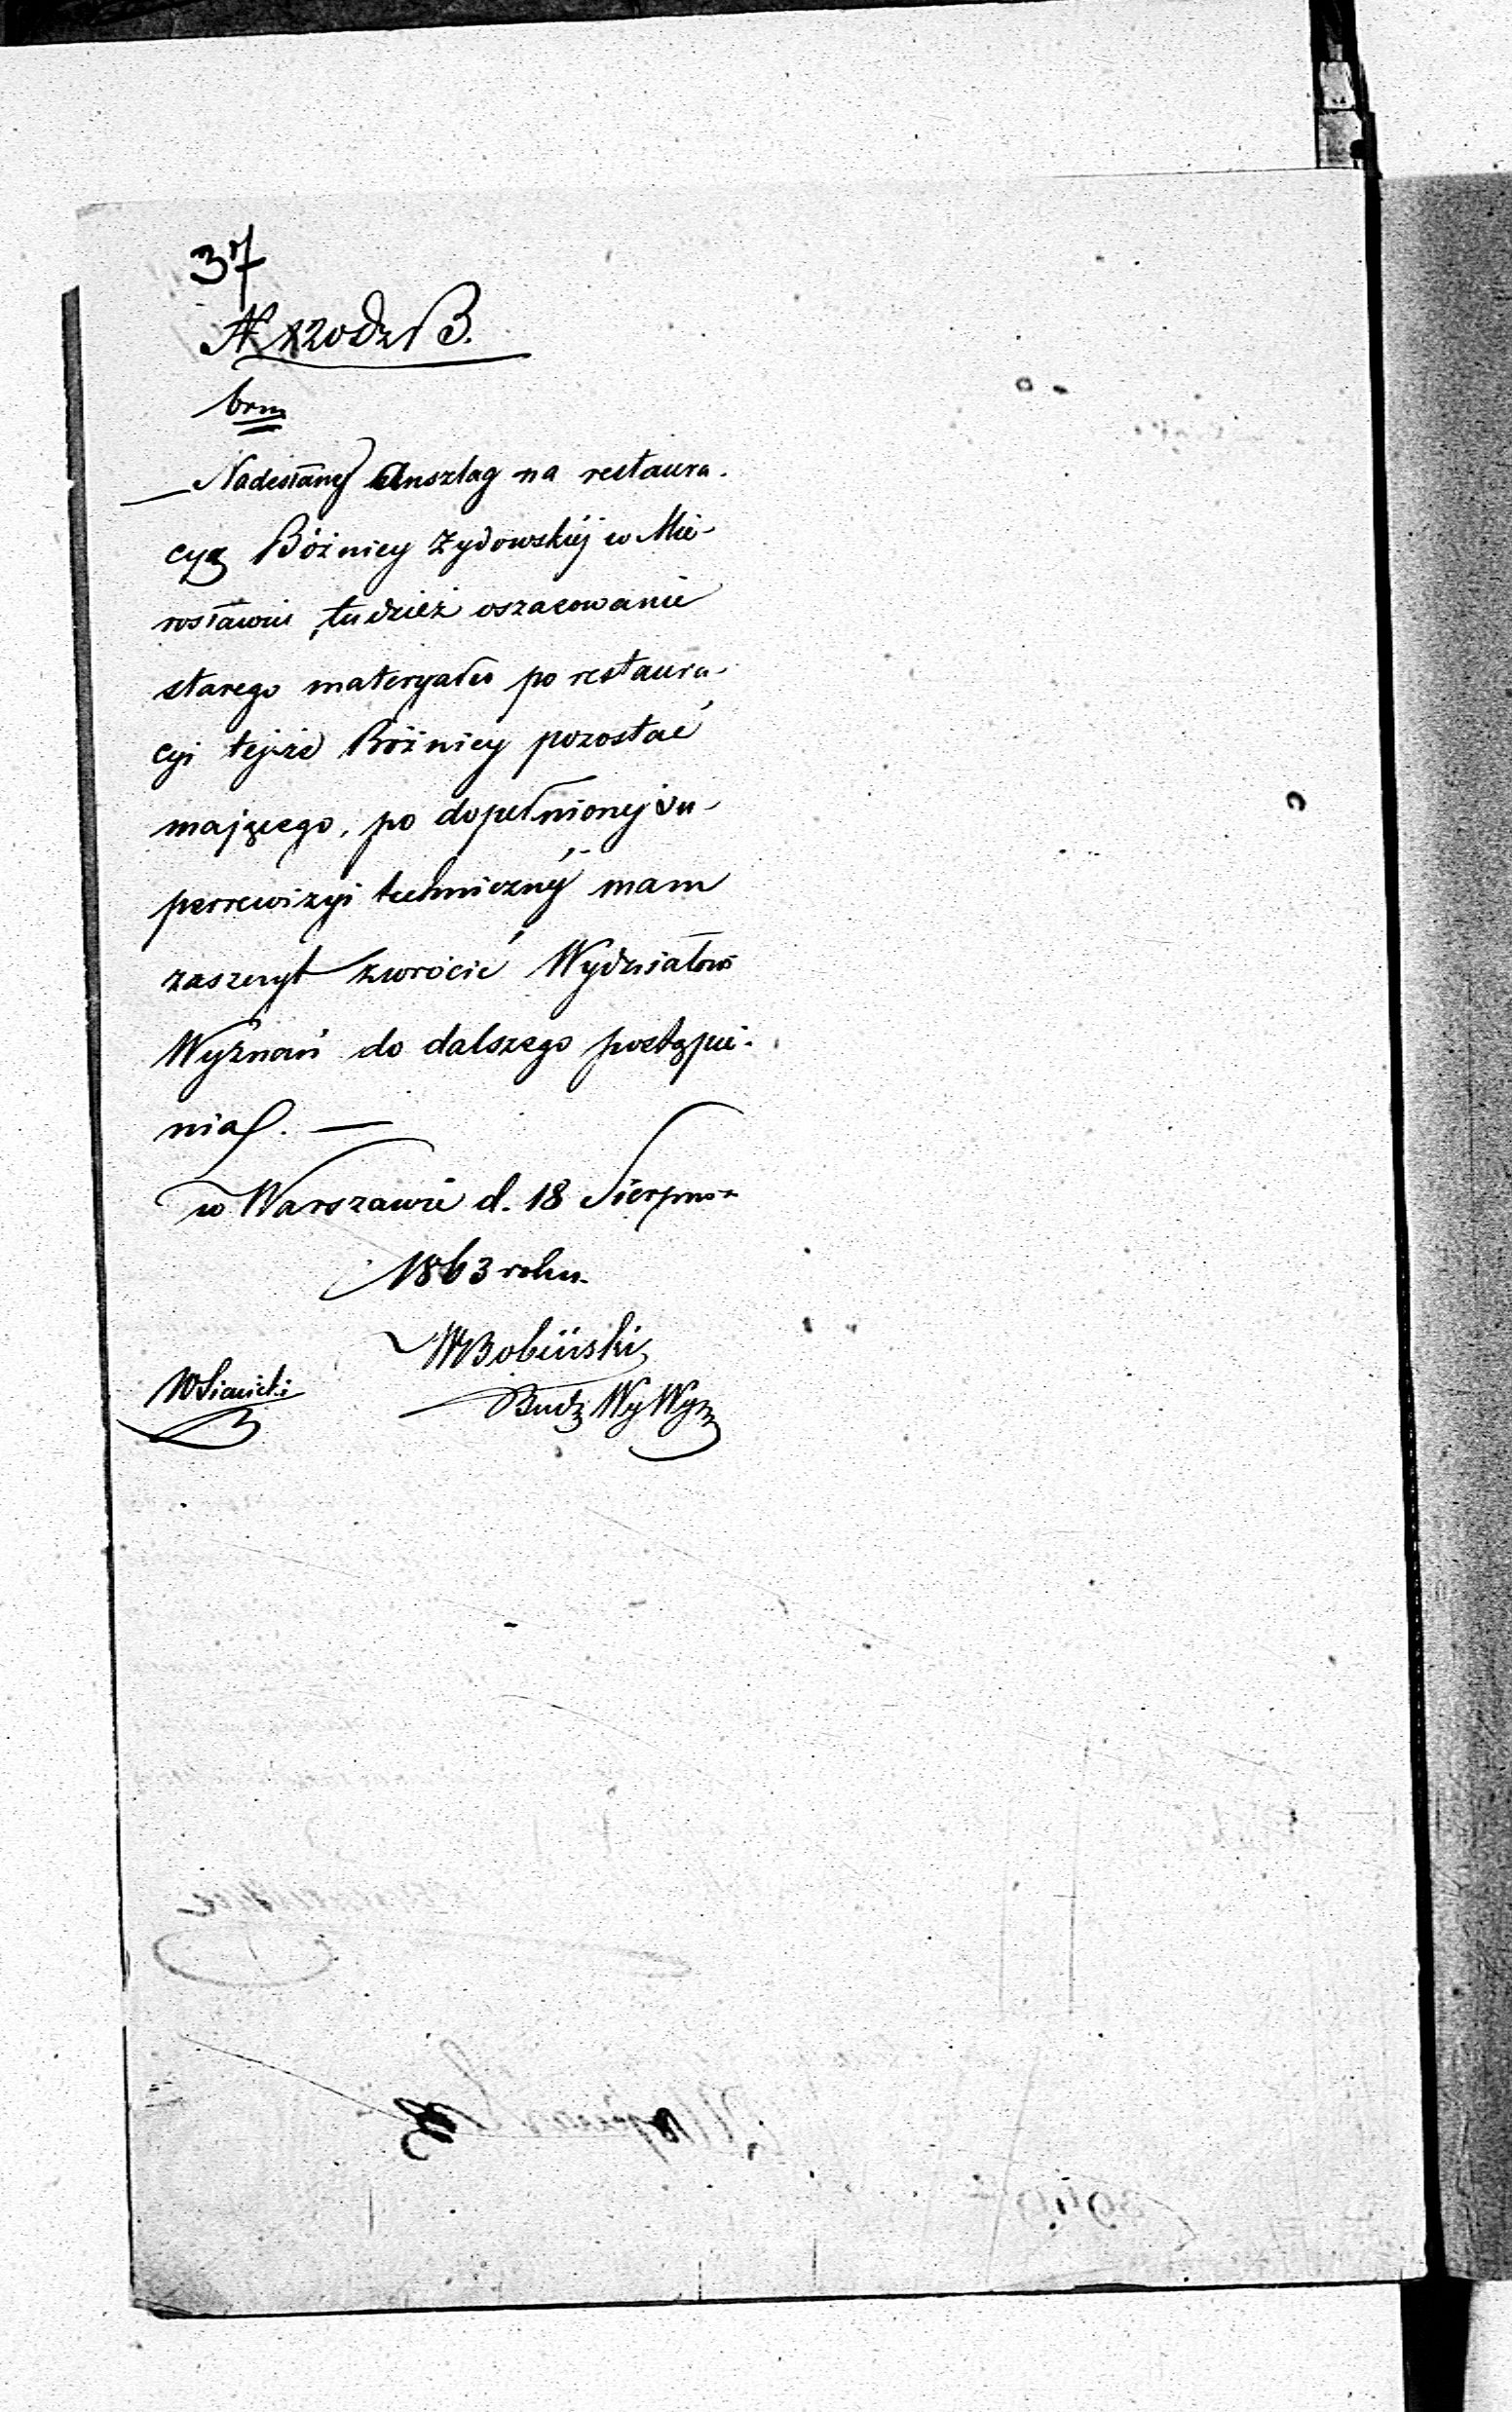 37
№ 120 Dz B.
brm
Nadesłany Anszlag na restaura-
cyą Bóżnicy Żydowskiéj w Mie-
rosławiu, tudzież oszacowanie
starego materyału po restaura-
cyi tejże Bóżnicy pozostać
mającego, po dopełnionej su-
perrewizyi technicznéj mam
zaszczyt zwrócić Wydziałowi
Wyznań do dalszego postąpie-
nia. —
w Warszawie d. 18 Sierpnia
1863 roku.
WBobiński
Budz Wy Wyz